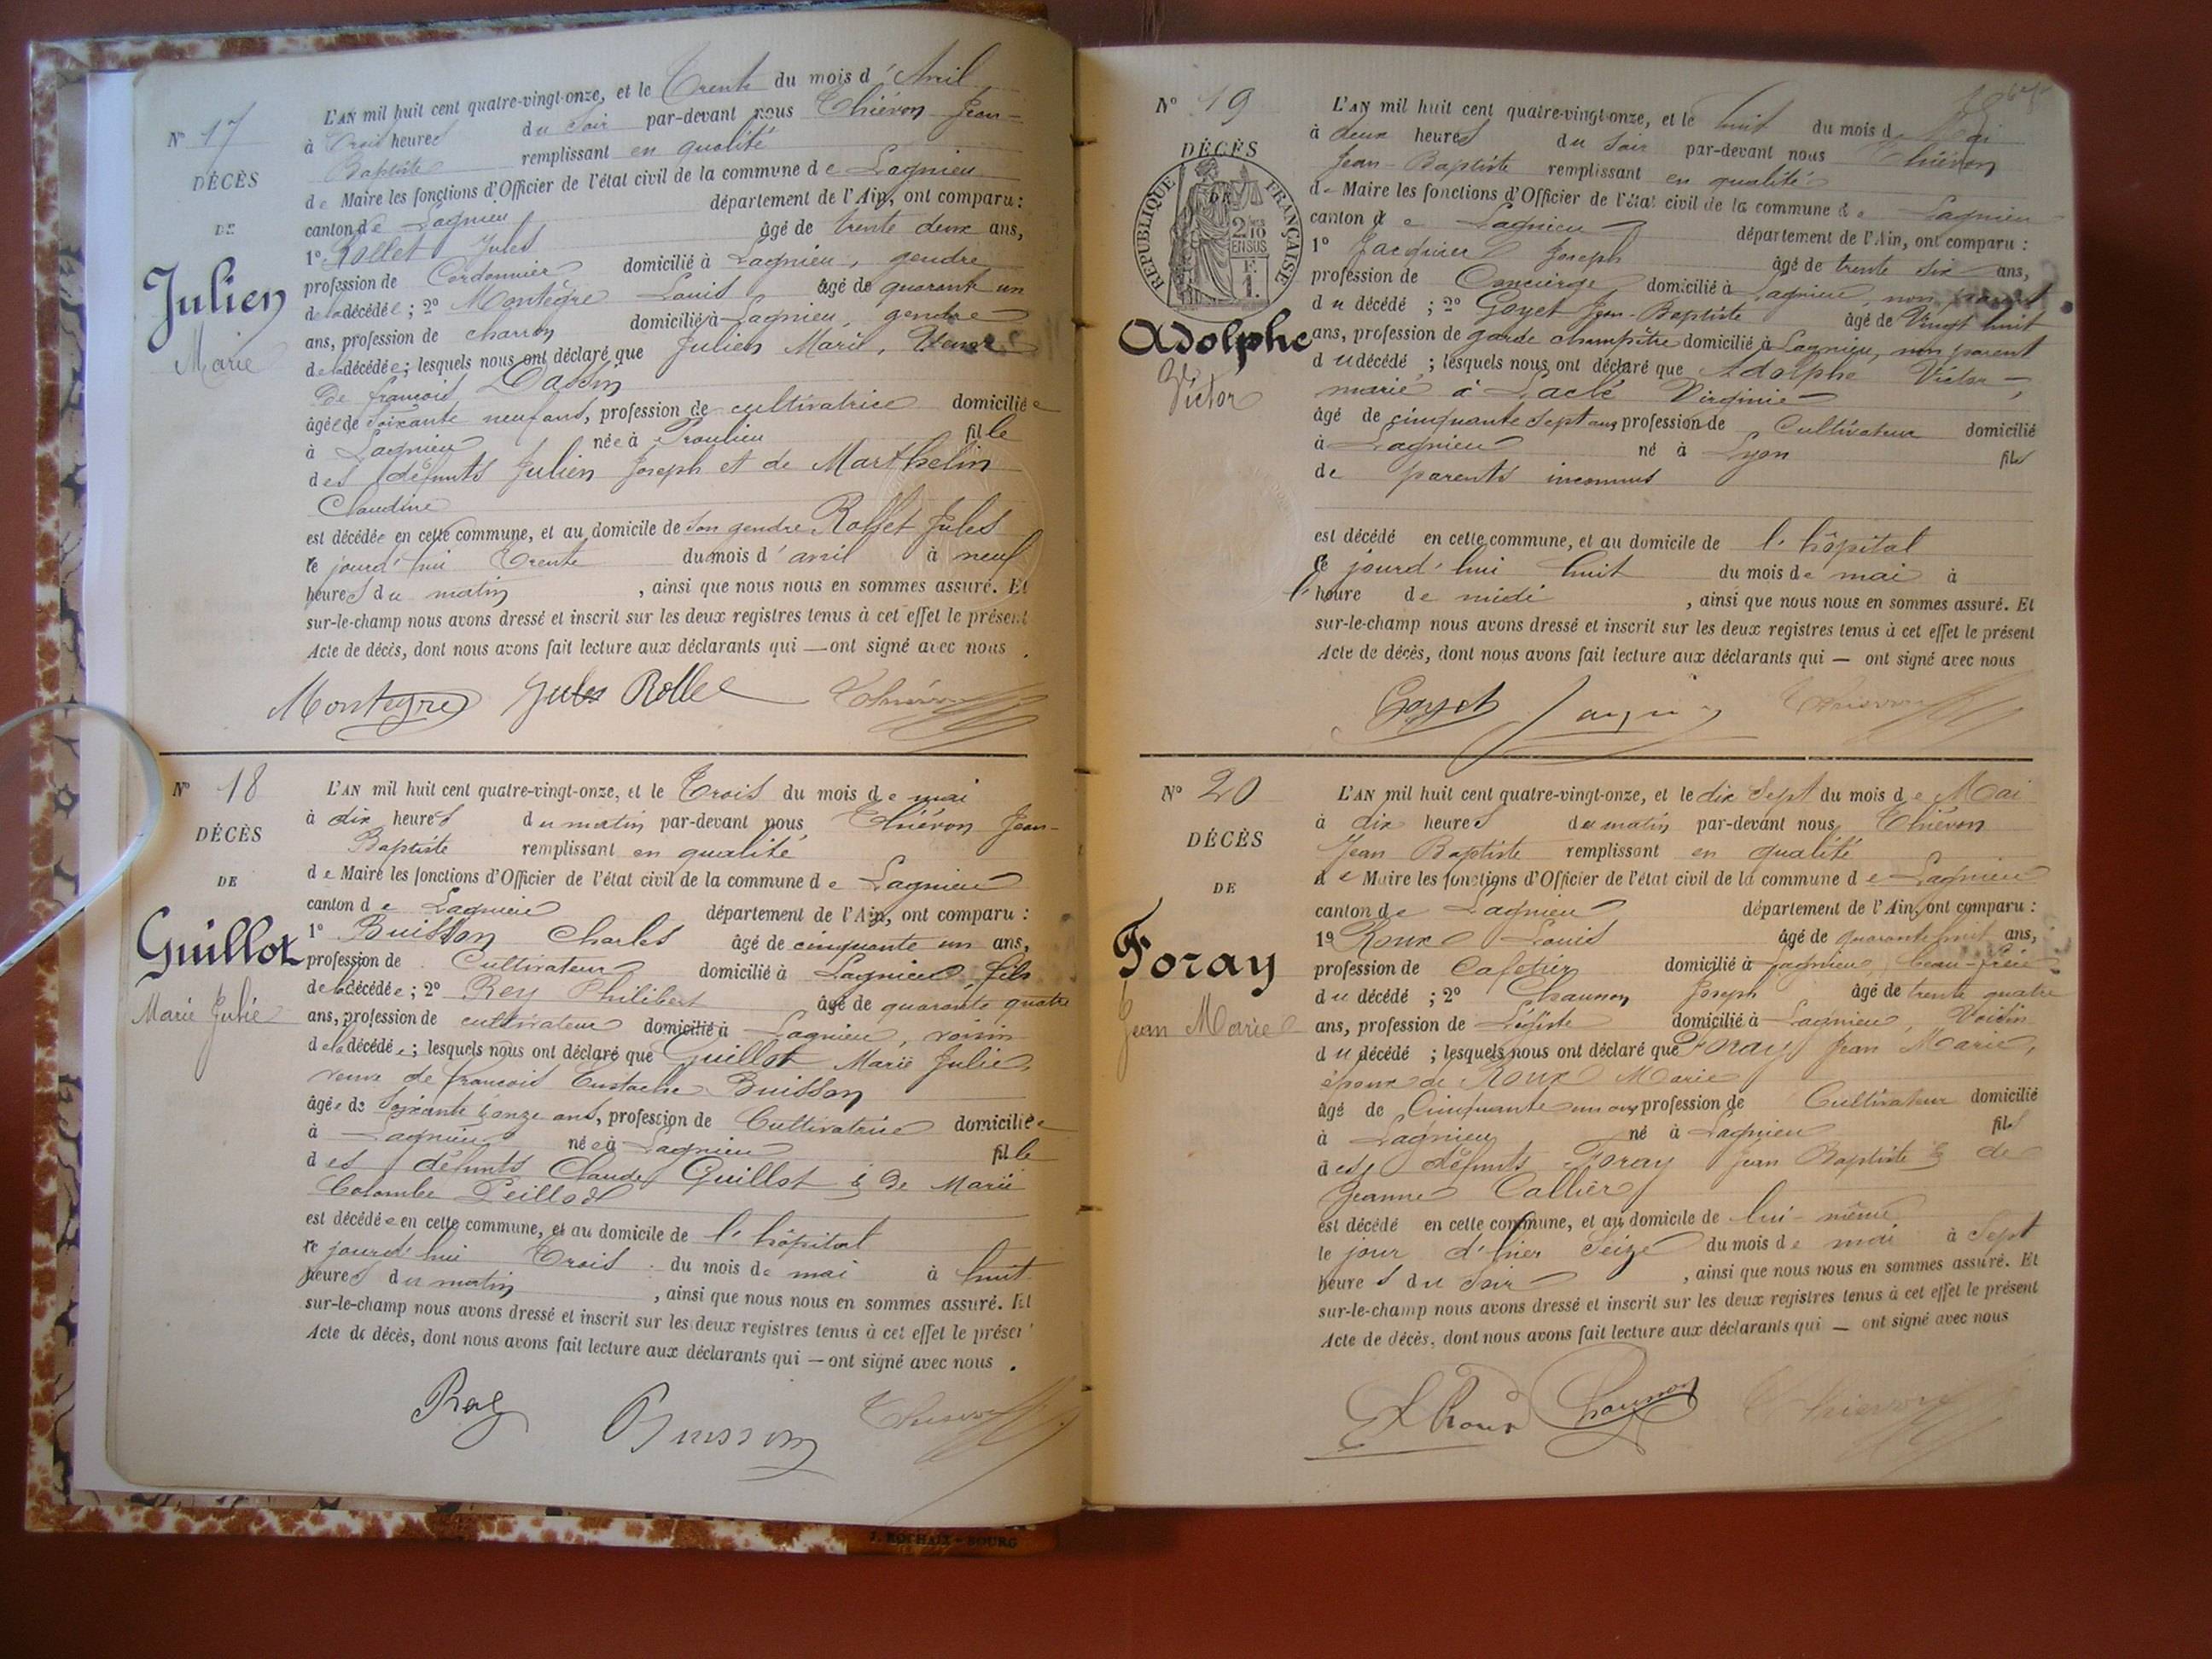 N° 17
DÉCÈS
DE
Julien
Marie
L'AN mil huit cent quatre-vingt-onze, et le Trente du mois d'Avril
à Trois heures du Soir par-devant nous Thiévon Jean-
Baptiste remplissant en qualité
de Maire les fonctions d'Officier de l'état civil de la commune de Lagnieu
canton de Lagnieu département de l'Ain, ont comparu :
1° Rollet Jules âgé de trente deux ans,
profession de Cordonnier domicilié à Lagnieu, gendre
de la décédée ; 2° Montégre Louis âgé de quarante un
ans, profession de charron domicilié à Lagnieu, gendre
de la décédée ; lesquels nous ont déclaré que Julien Marie, Veuve
De françois Dassin
âgée de Soixante neuf ans, profession de cultivatrice domiciliée
à Lagnieu née à Proulieu fille
des défunts Julien Joseph et de Marthelin
Claudine
est décédée en cette commune, et au domicile de son gendre Rollet Jules
ce jourd'hui Trente du mois d'avril à neuf
heures du matin, ainsi que nous nous en sommes assuré. Et
sur-le-champ nous avons dressé et inscrit sur les deux registres tenus à cet effet le présent
Acte de décès, dont nous avons fait lecture aux déclarants qui — ont signé avec nous.
Montegre Jules Rollet Thiévon
N° 18
DÉCÈS
DE
Guillot
Marie Julie
L'AN mil huit cent quatre-vingt-onze, et le Trois du mois de mai
à dix heures du matin par-devant nous Thiévon Jean-
Baptiste remplissant en qualité
de Maire les fonctions d'Officier de l'état civil de la commune de Lagnieu
canton de Lagnieu département de l'Ain, ont comparu :
1° Buisson Charles âgé de cinquante un ans,
profession de Cultivateur domicilié à Lagnieu, fils
de la décédée ; 2° Rey Philibert âgé de quarante quatre
ans, profession de cultivateur domicilié à Lagnieu, voisin
de la décédée ; lesquels nous ont déclaré que Guillot Marie Julie,
veuve de françois Eustache Buisson
âgée de Soixante onze ans, profession de Cultivatrice domiciliée
à Lagnieu née à Lagnieu fille
des défunts Claude Guillot & de Marie
Colombe Peillod
est décédée en cette commune, et au domicile de l'hôpital
ce jourd'hui Trois du mois de mai à huit
heures du matin, ainsi que nous nous en sommes assuré. Et
sur-le-champ nous avons dressé et inscrit sur les deux registres tenus à cet effet le présent
Acte de décès, dont nous avons fait lecture aux déclarants qui — ont signé avec nous.
Rey Buisson Thiévon
J. ROCHAIX - BOURG
N° 19
DÉCÈS
DE
RÉPUBLIQUE FRANÇAISE
2/10
EN SUS
F.
1.
Adolphe
Victor
L'AN mil huit cent quatre-vingt-onze, et le huit du mois de Mai
à deux heures du Soir par-devant nous Thiévon
Jean-Baptiste remplissant en qualité
de Maire les fonctions d'Officier de l'état civil de la commune de Lagnieu
canton de Lagnieu département de l'Ain, ont comparu :
1° Jacquier Joseph âgé de trente six ans,
profession de Concierge domicilié à Lagnieu, non parent
du décédé ; 2° Goyet Jean-Baptiste âgé de Vingt huit
ans, profession de garde champêtre domicilié à Lagnieu, non parent
du décédé ; lesquels nous ont déclaré que Adolphe Victor,
marié à Virginie
âgé de cinquante Sept ans profession de Cultivateur domicilié
à Lagnieu né à Lyon fils
de parents inconnus
est décédé en cette commune, et au domicile de l'hôpital
Ce jourd'hui huit du mois de mai à
l'heure de midi, ainsi que nous nous en sommes assuré. Et
sur-le-champ nous avons dressé et inscrit sur les deux registres tenus à cet effet le présent
Acte de décès, dont nous avons fait lecture aux déclarants qui — ont signé avec nous
Goyet Jacquier Thiévon
N° 20
DÉCÈS
DE
Foray
Jean Marie
L'AN mil huit cent quatre-vingt-onze, et le dix Sept du mois de Mai
à dix heures du matin par-devant nous Thiévon
Jean Baptiste remplissant en qualité
de Maire les fonctions d'Officier de l'état civil de la commune de Lagnieu
canton de Lagnieu département de l'Ain, ont comparu :
1° Roux Louis âgé de quarante huit ans,
profession de Cafetier domicilié à Lagnieu, beau-frère
du décédé ; 2° Chaunon Joseph âgé de trente quatre
ans, profession de Légiste domicilié à Lagnieu, Voisin
du décédé ; lesquels nous ont déclaré que Foray Jean Marie,
époux de Roux Marie
âgé de Cinquante un ans profession de Cultivateur domicilié
à Lagnieu né à Lagnieu fils
des défunts Foray Jean Baptiste & de
Jeanne Callier
est décédé en cette commune, et au domicile de lui-même
le jour d'hier Seize du mois de mai à Sept
heures du Soir, ainsi que nous nous en sommes assuré. Et
sur-le-champ nous avons dressé et inscrit sur les deux registres tenus à cet effet le présent
Acte de décès, dont nous avons fait lecture aux déclarants qui — ont signé avec nous
L Roux Chaunon Thiévon